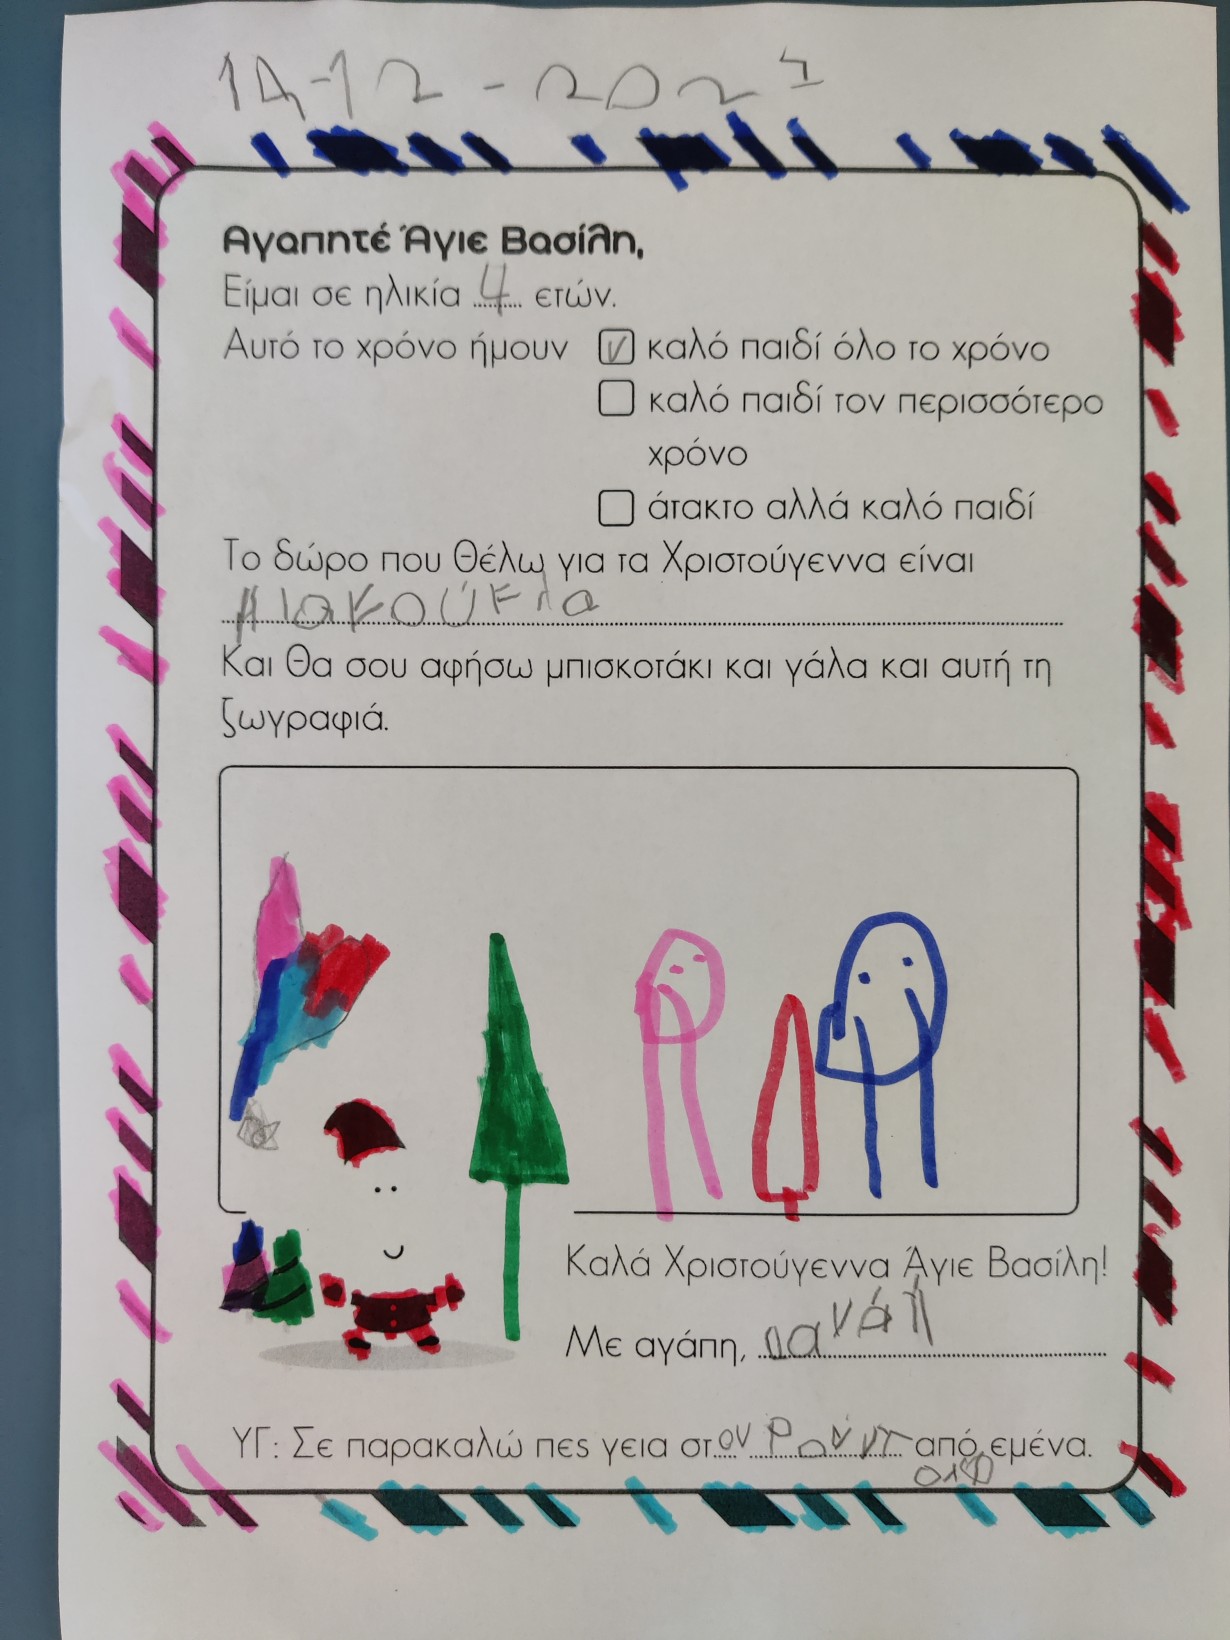 14-12-2021
Αγαπητέ Άγιε Βασίλη,
Είμαι σε ηλικία 4 ετών.
Αυτό το χρόνο ήμουν καλό παιδί όλο το χρόνο
καλό παιδί τον περισσότερο
χρόνο
άτακτο αλλά καλό παιδί
Το δώρο που θέλω για τα Χριστούγεννα είναι
Και θα σου αφήσω μπισκοτάκι και γάλα και αυτή τη
ζωγραφιά.
Καλά Χριστούγεννα Άγιε Βασίλη!
Με αγάπη,
ΥΓ: Σε παρακαλώ πες γεια στον από εμένα.